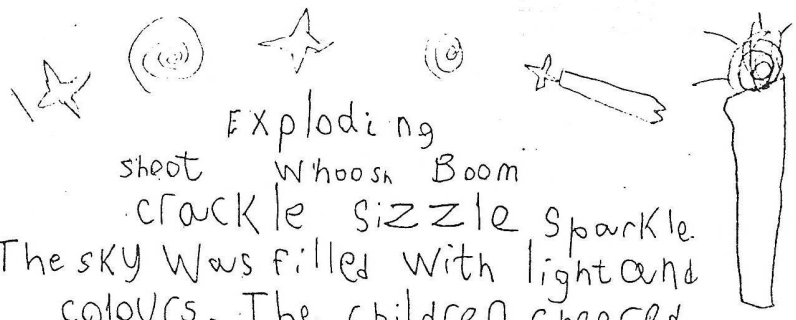 Exploding
shoot Whoosh Boom
crackle sizzle sparkle.
The sky was filled with light and
colours. The children cheered